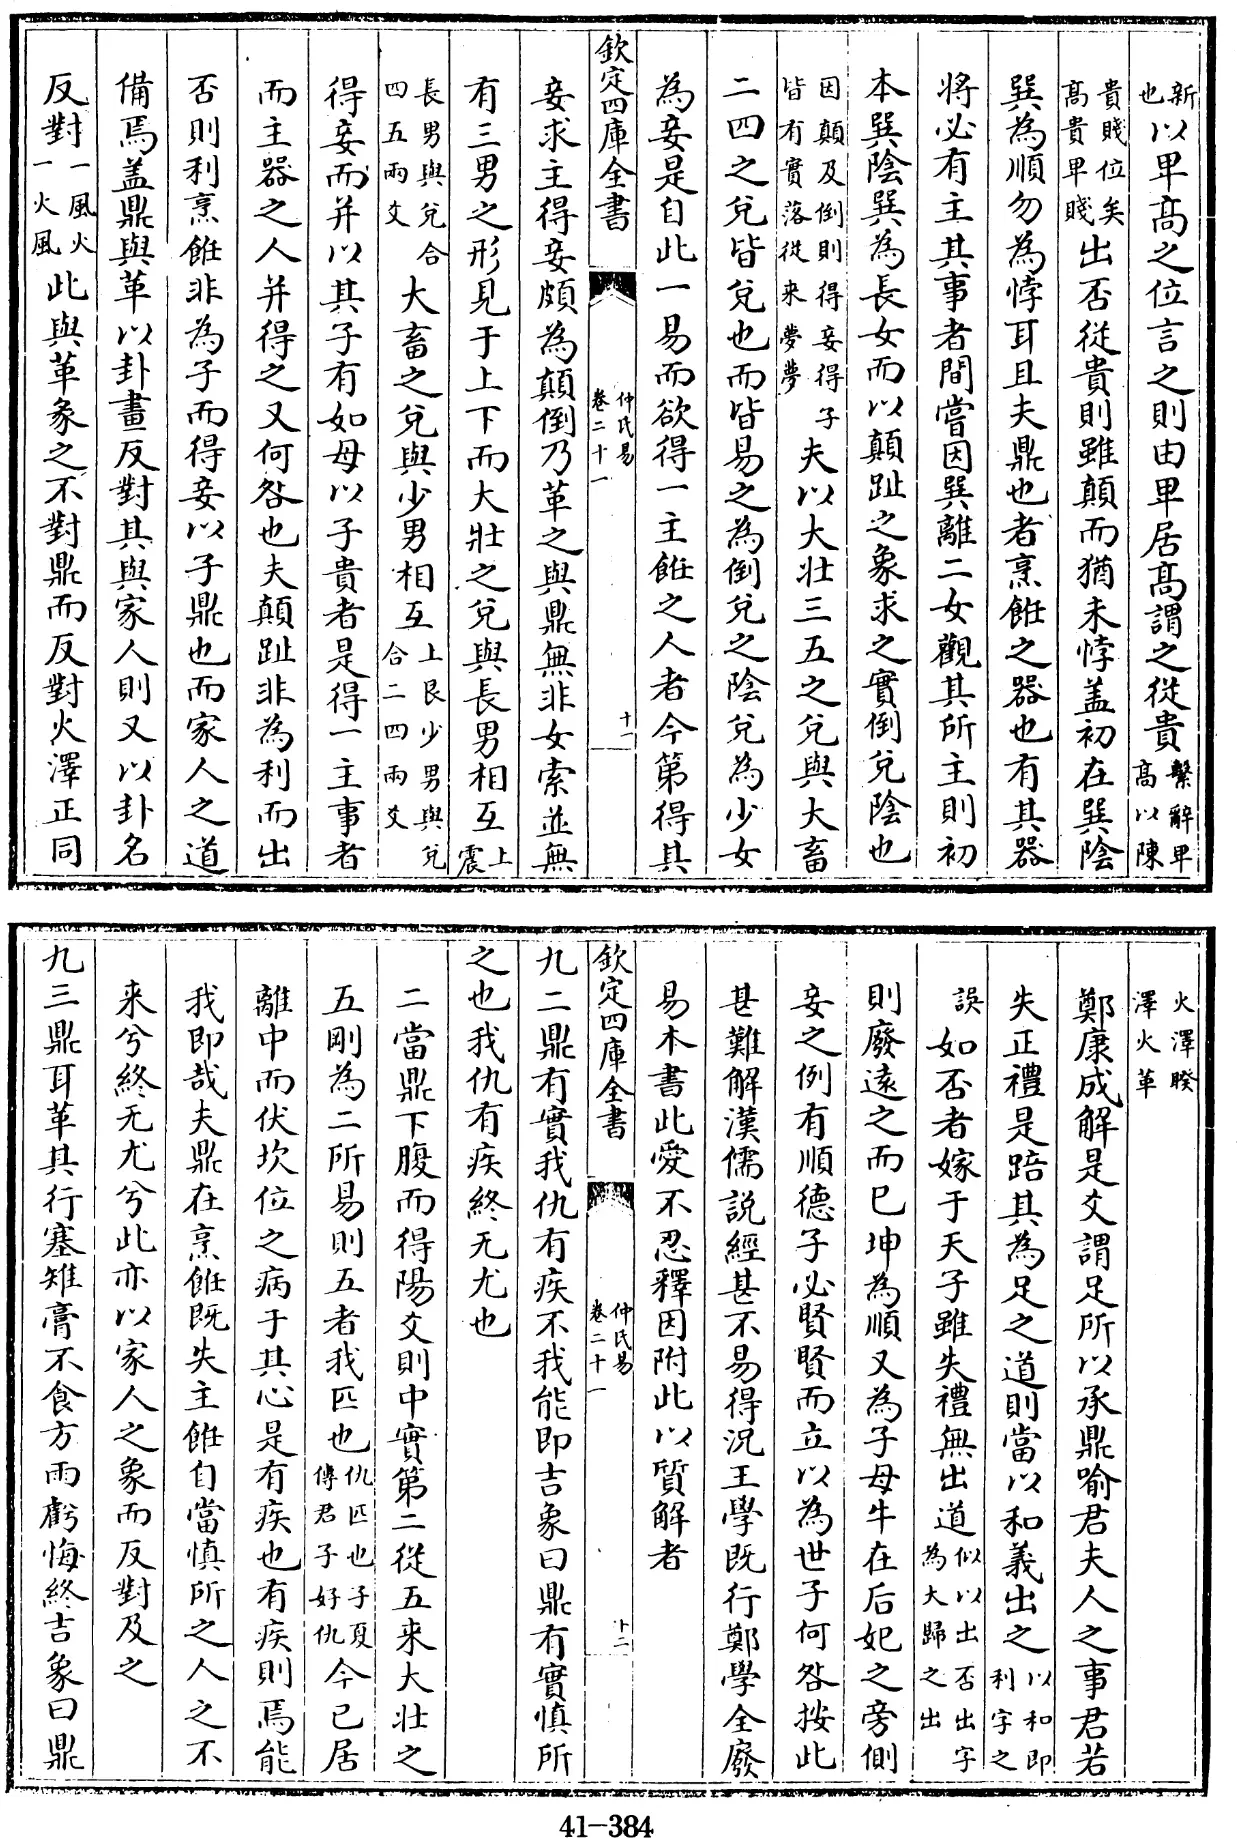 新也以卑高之位言之則由卑居高謂之從貴繫辭卑高以陳
貴賤位矣高貴卑賤出否從貴則雖顛而猶未悖盖初在巽陰
巽為順勿為悖耳且夫鼎也者烹飪之器也有其器
將必有主其事者間嘗因巽離二女觀其所主則初
本巽陰巽為長女而以顛趾之象求之實倒兌陰也
因顛及倒則得妾得子皆有實落從来夢夢夫以大壮三五之兌與大畜
二四之兌皆兌也而皆易之為倒兌之陰兌為少女
為妾是自此一易而欲得一主飪之人者今第得其
欽定四庫全書
仲氏易
卷二十一
十一
妾求主得妾頗為顛倒乃革之與鼎無非女索並無
有三男之形見于上下而大壯之兌與長男相互上震
長男與兌合四五兩爻大畜之兌與少男相互上艮少男與兌合二四兩爻
得妾而并以其子有如母以子貴者是得一主事者
而主器之人并得之又何咎也夫顛趾非為利而出
否則利烹飪非為子而得妾以子鼎也而家人之道
備焉盖鼎與革以卦畫反對其與家人則又以卦名
反對一風火一火風此與革象之不對鼎而反對火澤正同
火澤睽澤火革
鄭康成解是爻謂足所以承鼎喻君夫人之事君若
失正禮是踣其為足之道則當以和義出之以和即利字之
誤如否者嫁于天子雖失禮無出道似以出否出字為大歸之出
則廢遠之而已坤為順又為子母牛在后妃之旁側
妾之例有順德子必賢賢而立以為世子何咎按此
甚難解漢儒說經甚不易得況王學既行鄭學全廢
易本書此愛不忍釋因附此以質解者
欽定四庫全書
仲氏易
卷二十一
十二
九二鼎有實我仇有疾不我能即吉象曰鼎有實慎所
之也我仇有疾終无尤也
二當鼎下腹而得陽爻則中實第二從五来大壮之
五剛為二所易則五者我匹也仇匹也子夏傳君子好仇今已居
離中而伏坎位之病于其心是有疾也有疾則焉能
我即哉夫鼎在烹飪既失主飪自當慎所之人之不
来兮終无尤兮此亦以家人之象而反對及之
九三鼎耳革其行塞雉膏不食方雨虧悔終吉象曰鼎
41-384